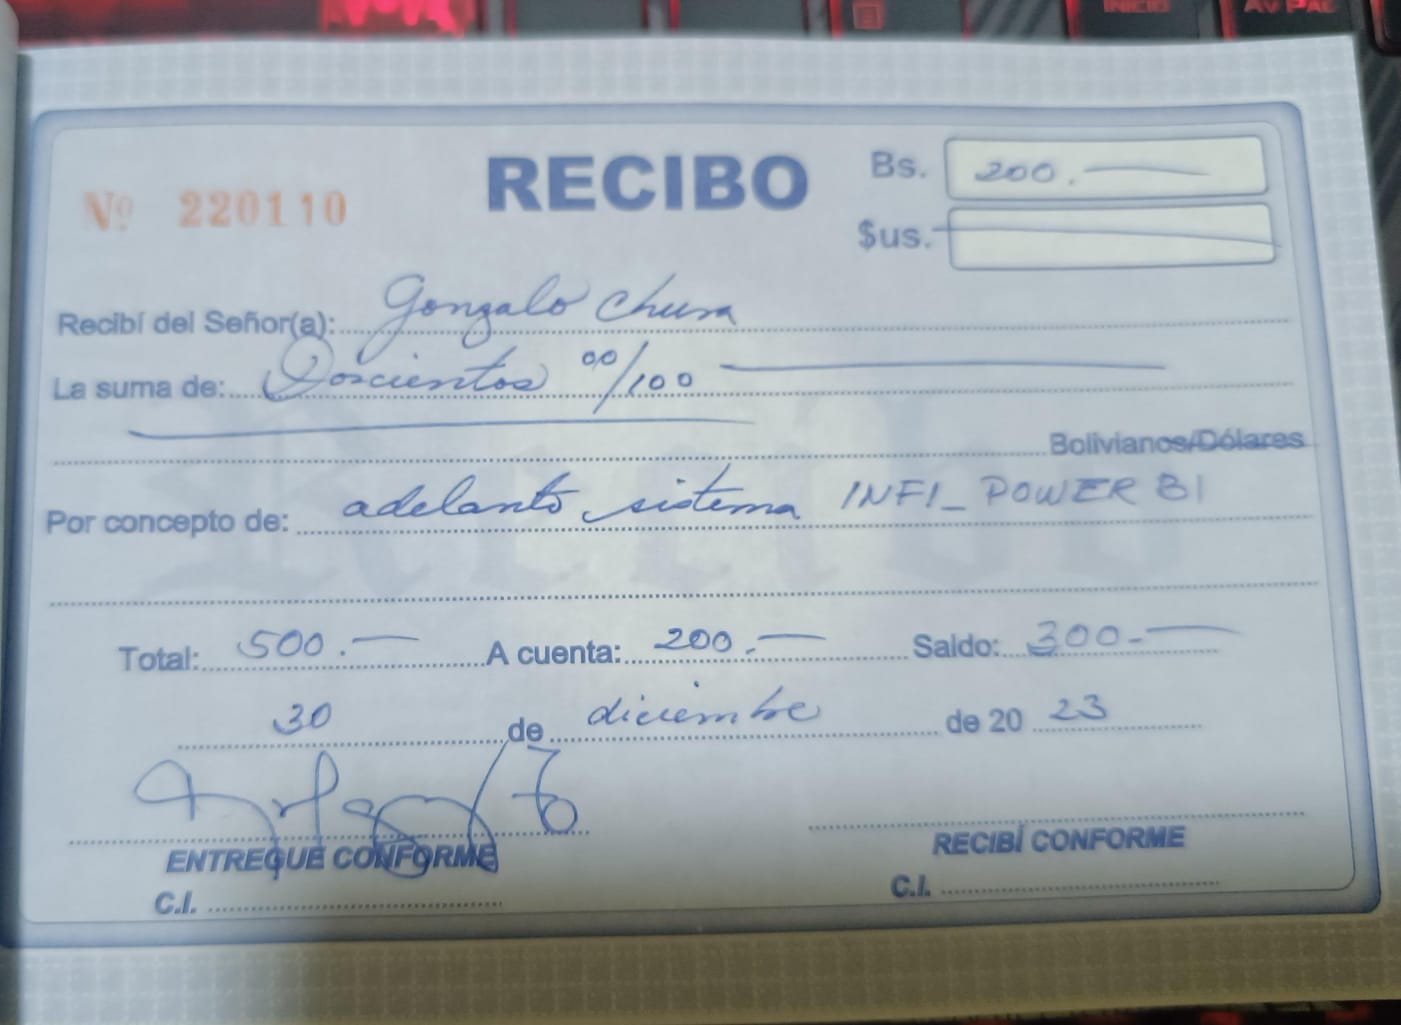 INICIO AV PÁG
RECIBO
Nº 220110
Bs. 200.
$us.
Recibí del Señor(a): Gonzalo Chura
La suma de: Doscientos 00/100
Bolivianos/Dólares
Por concepto de: adelanto sistema INFI_POWER BI
Total: 500.- A cuenta: 200.- Saldo: 300.-
30 de diciembre de 2023
ENTREGUE CONFORME
RECIBÍ CONFORME
C.I.
C.I.